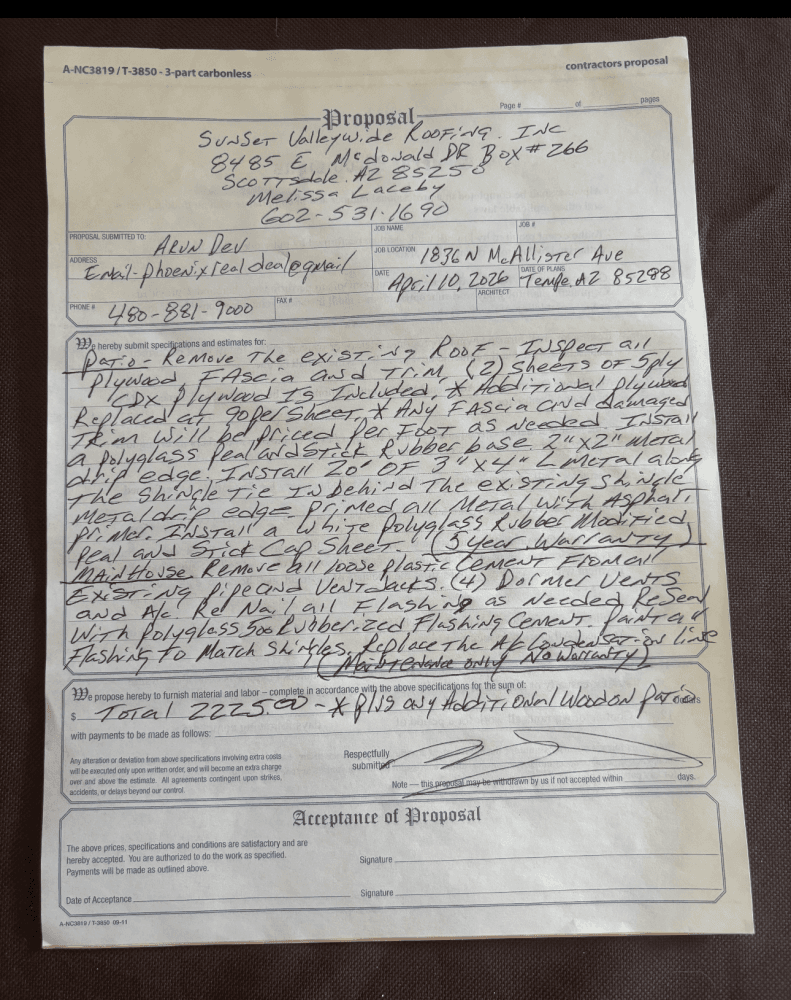 A-NC3819 / T-3850 - 3-part carbonless
contractors proposal
Page # of pages
Proposal
SunSet Valleywide Roofing. INC
8485 E McDonald DR Box # 266
Scottsdale. AZ 85250
Melissa Laceby
602-531-1690
PROPOSAL SUBMITTED TO: Arun Dev
JOB NAME
JOB #
ADDRESS Email-phoenixrealdeal@gmail
JOB LOCATION 1836 N McAllister Ave
DATE April 10, 2026
DATE OF PLANS Tempe. AZ 85288
ARCHITECT
PHONE # 480-881-9000
FAX #
We hereby submit specifications and estimates for:
Patio - Remove The existing Roof - Inspect all
Plywood, Fascia and Trim, (2) Sheets of 5ply
CDX plywood Is Included, * Additional plywood
Replaced at 90 per Sheet, * Any Fascia and damaged
Trim will be priced Per Foot as needed. Install
a polyglass Peal and Stick Rubber base 2"x2" metal
drip edge. Install 20' of 3"x4" L metal along
The Shingle Tie In behind The existing Shingle
Metal drip edge. Primed all Metal with Asphalt
primer. Install a White Polyglass Rubber Modified
Peal and Stick Cap Sheet. (5 year Warranty)
Main House Remove all loose plastic Cement From all
Existing Pipe and Vent Jacks. (4) Dormer Vents
and A/c. Re Nail all Flashing as needed ReSeal
With Polyglass 500 Rubberized Flashing Cement. Paint all
Flashing to Match Shingles. Replace The A/c Condensation line
(Maintenance only No Warranty)
We propose hereby to furnish material and labor – complete in accordance with the above specifications for the sum of:
$ Total 2225.00 - * plus any Additional Wood on Patio
with payments to be made as follows:
Any alteration or deviation from above specifications involving extra costs
will be executed only upon written order, and will become an extra charge
over and above the estimate. All agreements contingent upon strikes,
accidents, or delays beyond our control.
Respectfully
submitted
Note — this proposal may be withdrawn by us if not accepted within days.
Acceptance of Proposal
The above prices, specifications and conditions are satisfactory and are
hereby accepted. You are authorized to do the work as specified.
Payments will be made as outlined above.
Signature
Date of Acceptance
Signature
A-NC3819 / T-3850 09-11